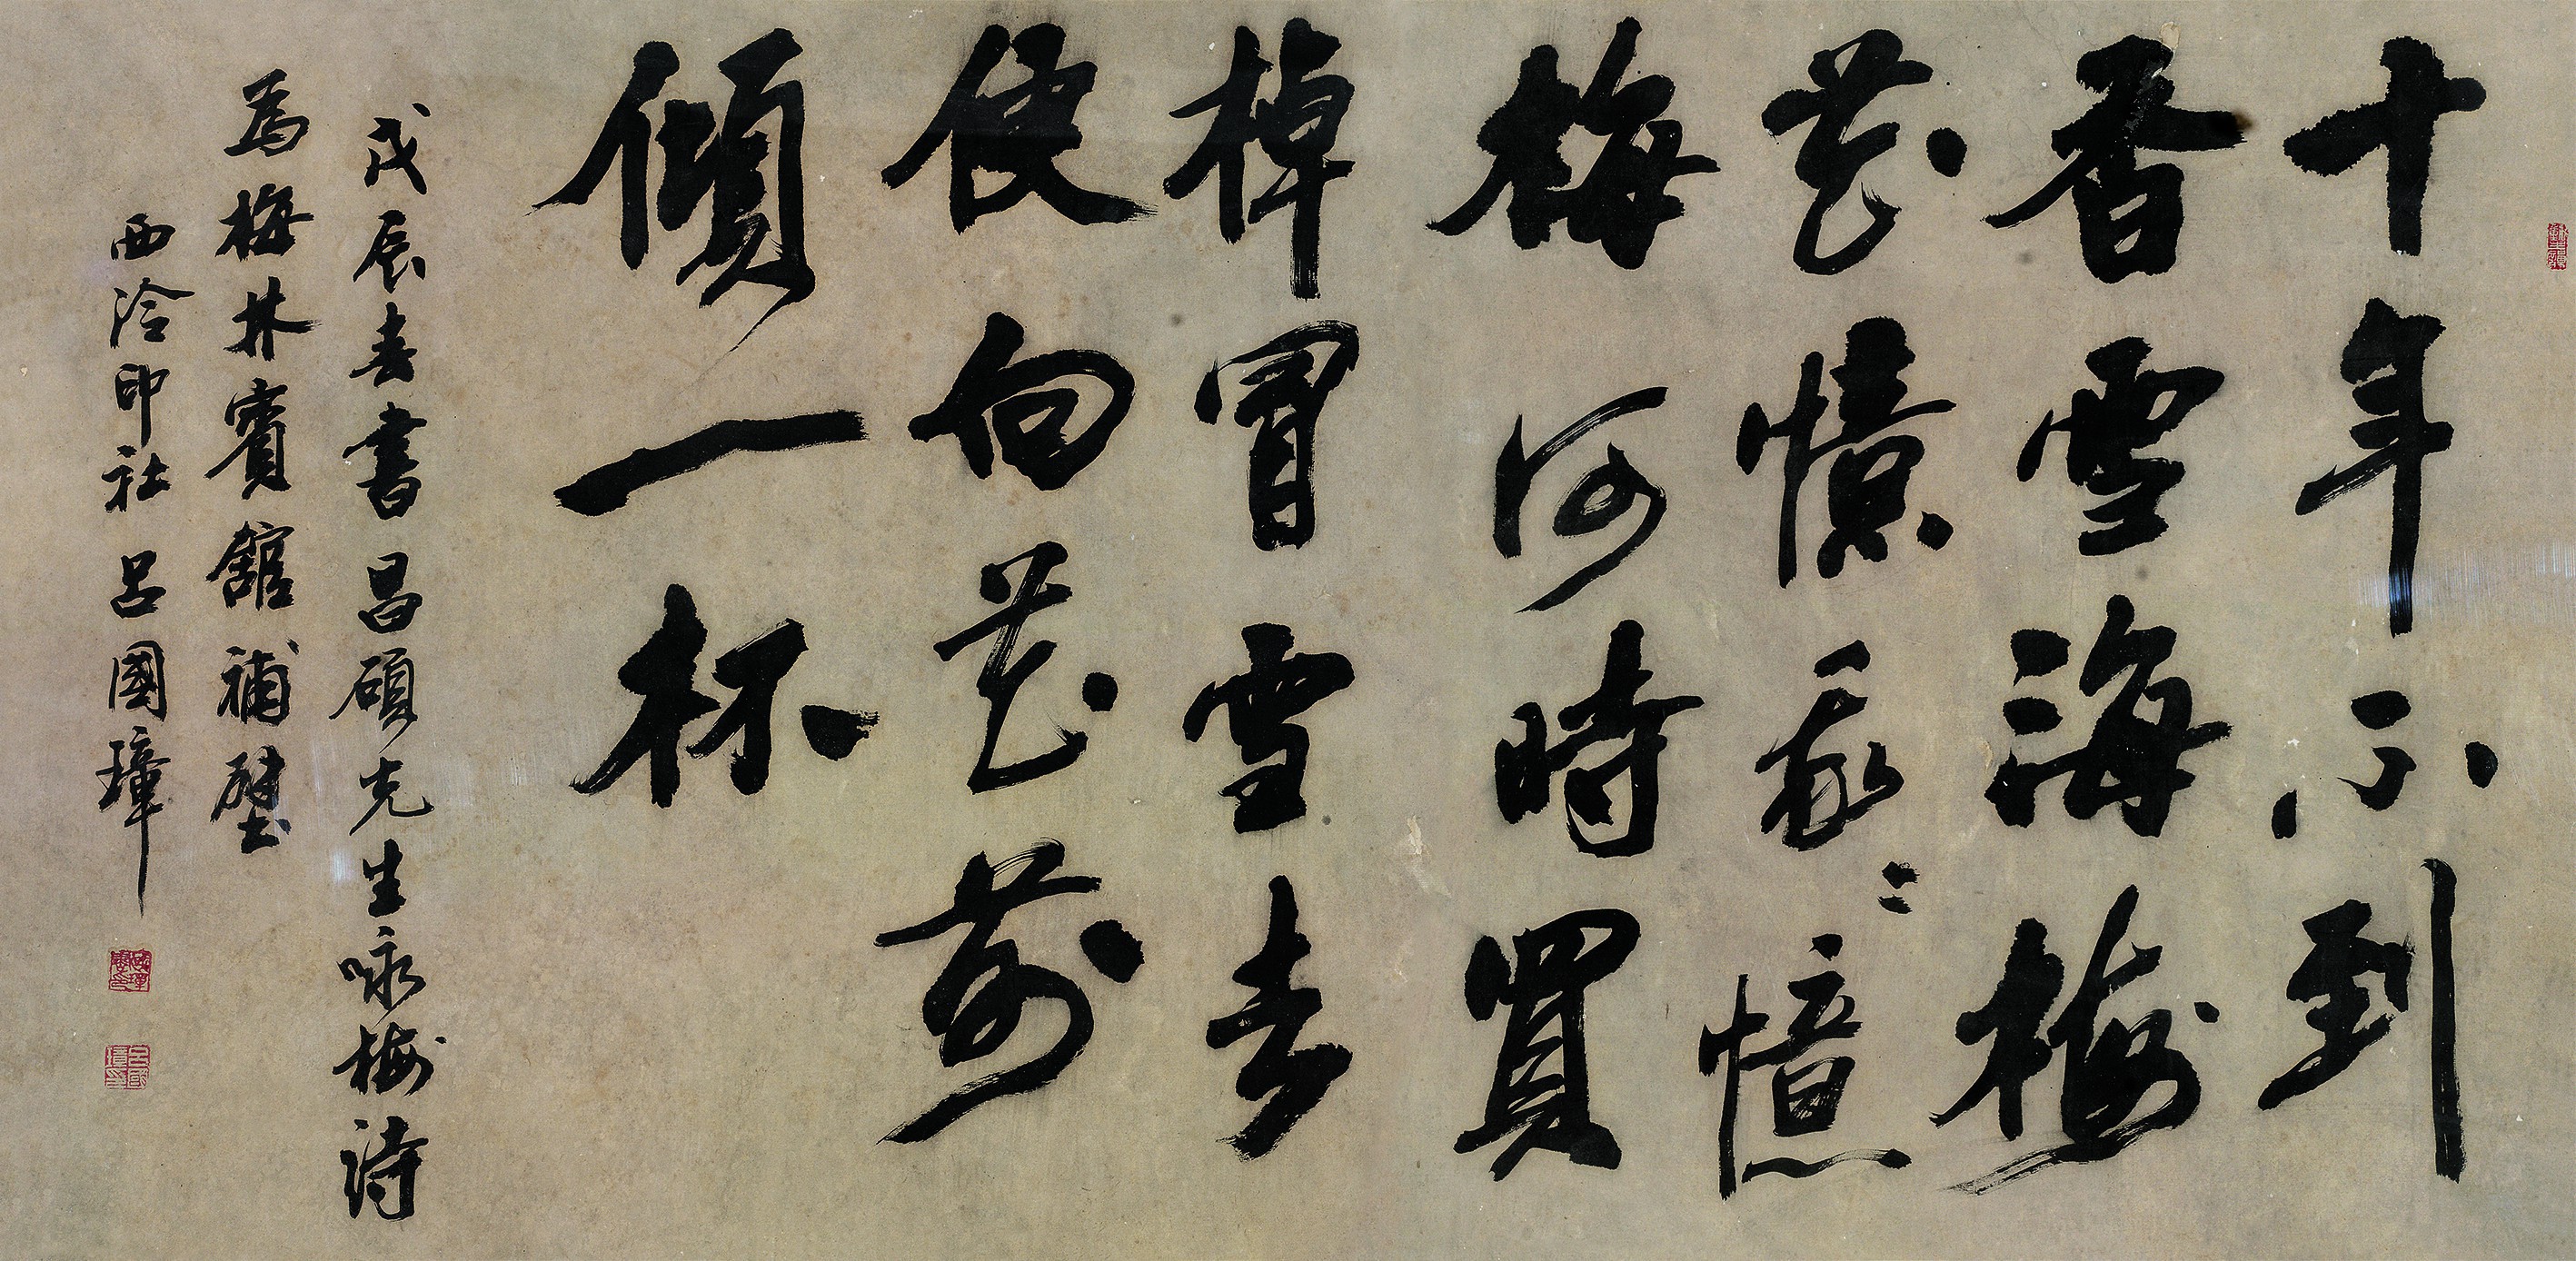 十年不到
香雪海梅
花憶我〻憶
梅何時買
棹冒雪去
便向花前
傾一杯
戊辰春書昌碩先生咏梅詩
為梅林賓舘補壁
西泠印社呂國璋